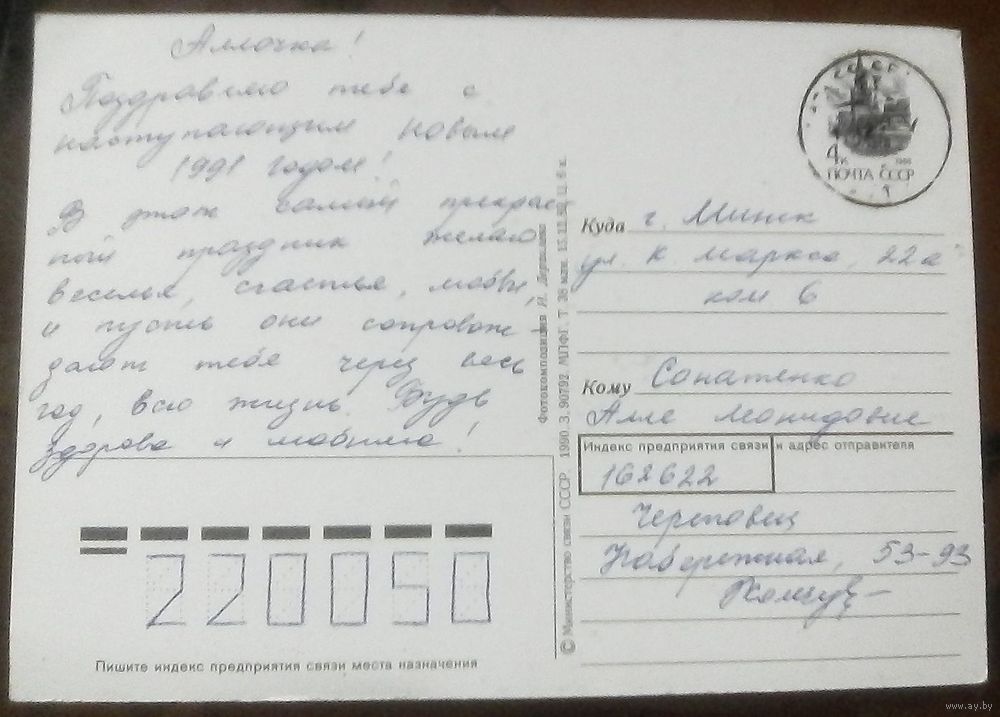 Аллочка!
Поздравляю тебя с
наступающим Новым
1991 годом!
В этот самый прекрас-
ный праздник желаю
веселья, счастья, любви,
и пусть они сопровож-
дают тебя через весь
год, всю жизнь. Будь
здорова и любима!
220050
Пишите индекс предприятия связи места назначения
Фотокомпозиция И. Дергилева
© Министерство связи СССР. 1990. З. 90792. МПФГ. Т. 38 млн. 15.12. Ц. 6 к.
4к
ПОЧТА СССР
Куда г. Минск
ул. К. Маркса, 22а
ком 6
Кому Сопатенко
Алле Леонидовне
Индекс предприятия связи и адрес отправителя
162622
Череповец
Набережная, 53-93
www.ay.by